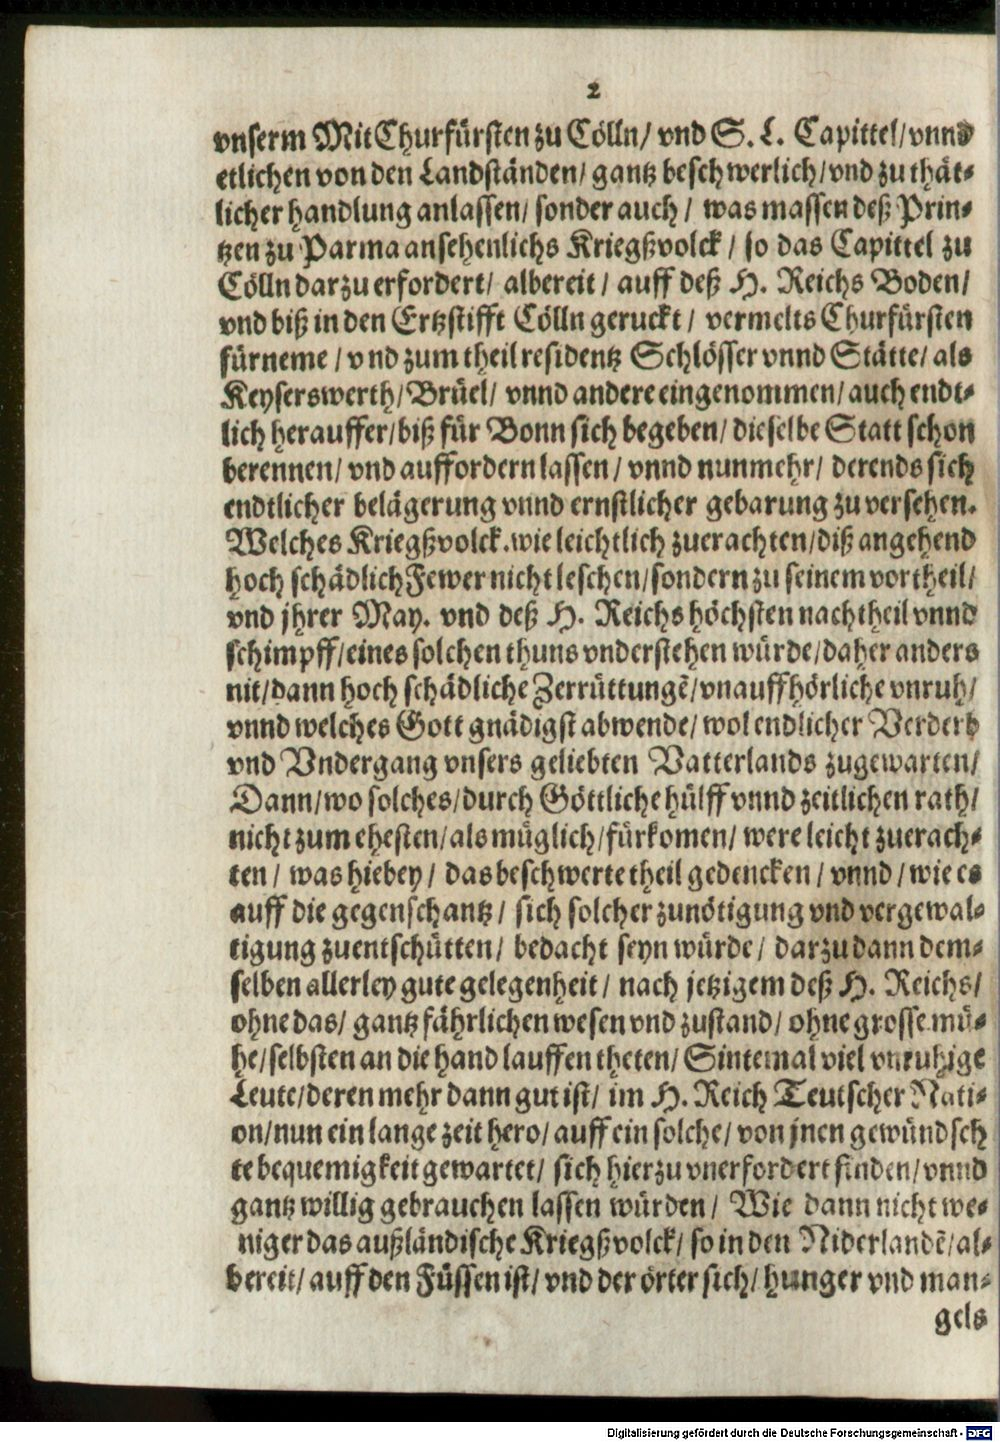 2
vnserm MitChurfürsten zu Cölln/ vnd S. L. Capittel/ vnnd
etlichen von den Landständen/ gantz beschwerlich/ vnd zu thät-
licher handlung anlassen/ sonder auch/ was massen deß Prin-
tzen zu Parma ansehenlichs Kriegßvolck/ so das Capittel zu
Cölln darzu erfordert/ albereit/ auff deß H. Reichs Boden/
vnd biß in den Ertzstifft Cölln geruckt/ vermelts Churfürsten
fürneme/ vnd zum theil residentz Schlösser vnnd Stätte/ als
Keyserswerth/ Brüel/ vnnd andere eingenommen/ auch endt-
lich herauffer/ biß für Bonn sich begeben/ dieselbe Statt schon
berennen/ vnd auffordern lassen/ vnnd nunmehr/ derends sich
endtlicher belägerung vnnd ernstlicher gebarung zu versehen.
Welches Kriegßvolck. wie leichtlich zuerachten/ diß angehend
hoch schädlich Fewer nicht leschen/ sondern zu seinem vortheil/
vnd jhrer May. vnd deß H. Reichs höchsten nachtheil vnnd
schimpff/ eines solchen thuns vnderstehen würde/ daher anders
nit/ dann hoch schädliche Zerrüttungẽ/ vnauffhörliche vnruh/
vnnd welches Gott gnädigst abwende/ wol endlicher Verderb
vnd Vndergang vnsers geliebten Vatterlands zugewarten/
Dann/ wo solches/ durch Göttliche hülff vnnd zeitlichen rath/
nicht zum ehesten/ als müglich/ fürkomen/ were leicht zuerach-
ten/ was hiebey/ das beschwerte theil gedencken/ vnnd/ wie es
auff die gegenschantz/ sich solcher zunötigung vnd vergewal-
tigung zuentschütten/ bedacht seyn würde/ darzu dann dem-
selben allerley gute gelegenheit/ nach jetzigem deß H. Reichs/
ohne das/ gantz fährlichen wesen vnd zustand/ ohne grosse mü-
he/ selbsten an die hand lauffen theten/ Sintemal viel vnruhige
Leute/ deren mehr dann gut ist/ im H. Reich Teutscher Nati-
on/ nun ein lange zeit hero/ auff ein solche/ von jnen gewündsch
te bequemigkeit gewartet/ sich hierzu vnerfordert finden/ vnnd
gantz willig gebrauchen lassen würden/ Wie dann nicht we-
niger das außländische Kriegßvolck/ so in den Niderlandẽ/ al-
bereit/ auff den Füssen ist/ vnd der örter sich/ hunger vnd man-
gels
Digitalisierung gefördert durch die Deutsche Forschungsgemeinschaft - DFG